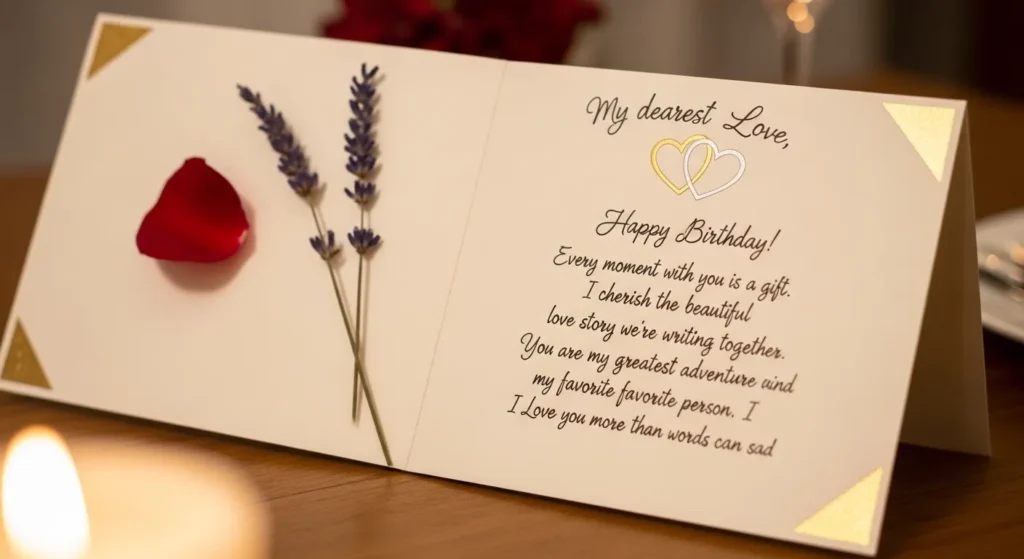 My dearest Love,
Happy Birthday!
Every moment with you is a gift.
I cherish the beautiful
love story we're writing together.
You are my greatest adventure uind
my favorite favorite person. I
I Love you more than words can sad